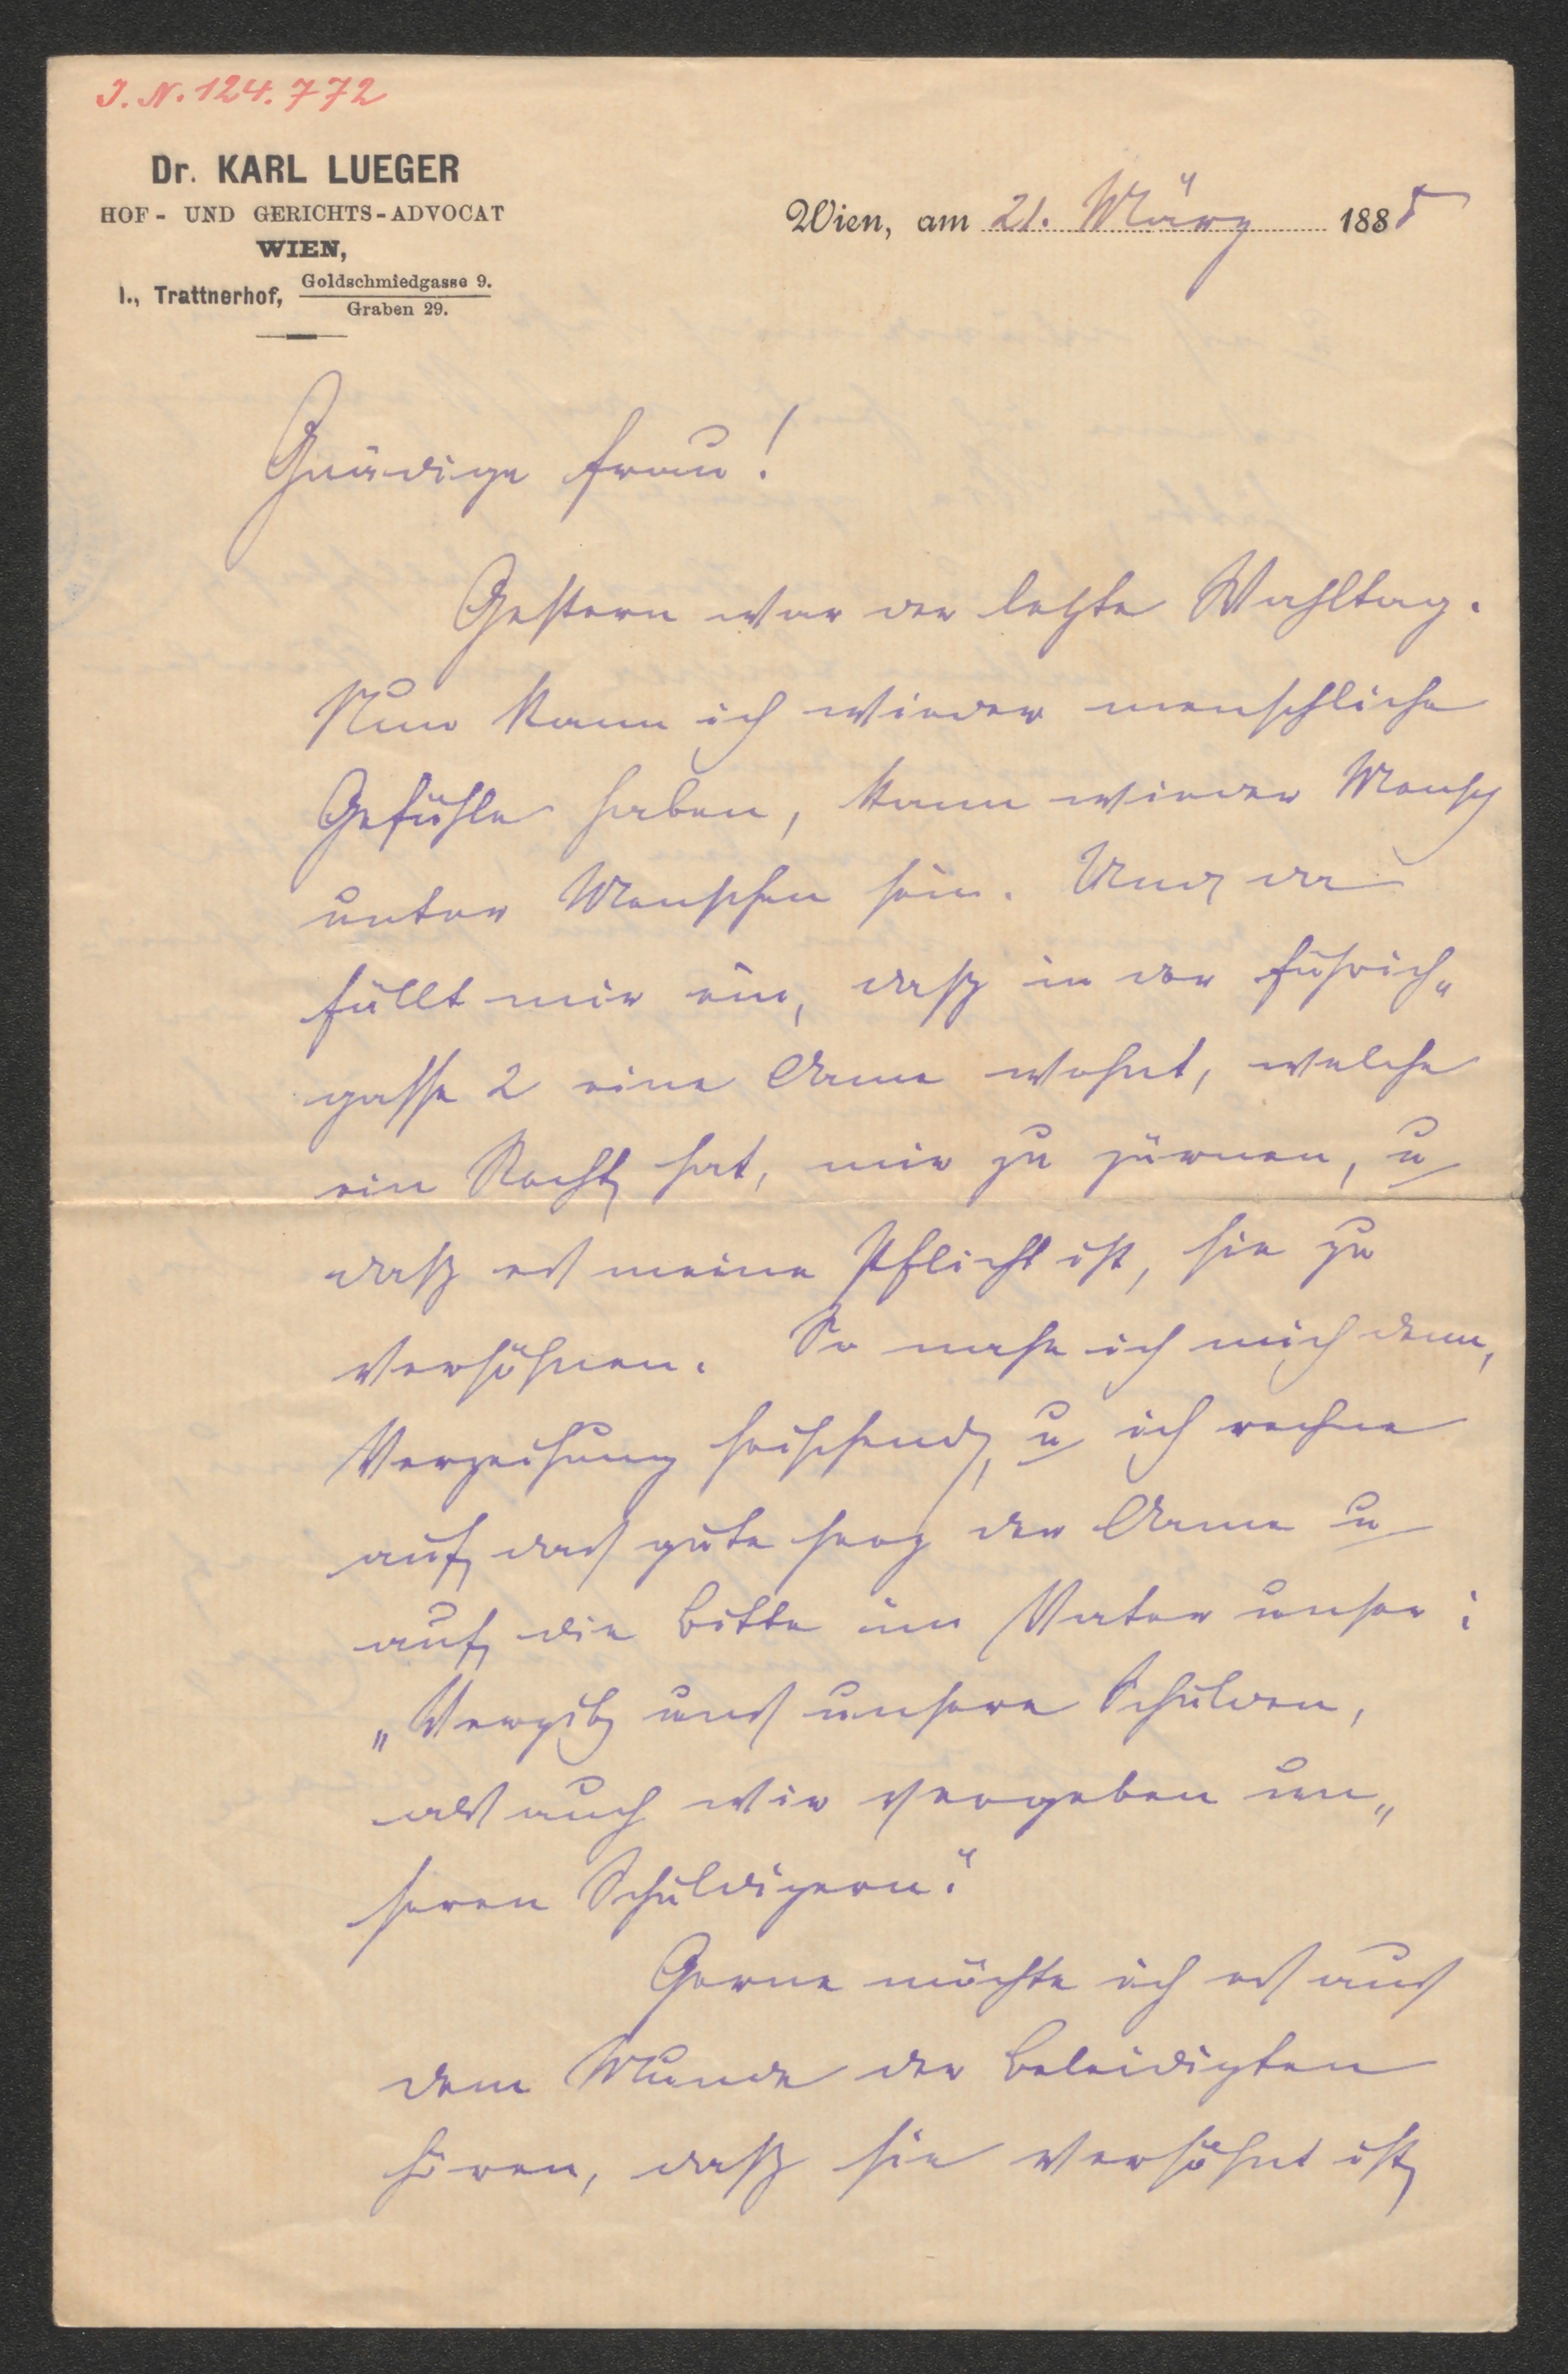 J. N. 124.772
Dr. KARL LUEGER
HOF- UND GERICHTS-ADVOCAT
WIEN,
I., Trattnerhof, Goldschmiedgasse 9.
Graben 29.
Wien, am 21. März 1885
Gnädige Frau!
Gestern war der letzte Wahltag.
Nun kann ich wieder menschliche
Gefühle haben, kann wieder Mensch
unter Menschen sein. Und da
fällt mir ein, daß in der Führich„
gasse 2 eine Dame wohnt, welche
ein Recht hat, mir zu zürnen, u
daß es meine Pflicht ist, sie zu
versöhnen. So nahe ich mich denn,
Verzeihung heischend, u ich rechne
auf das gute Herz der Dame u
auf die Bitte im Vater unser:
„Vergib uns unsere Schulden,
als auch wir vergeben un„
seren Schuldigern."
Gerne möchte ich es aus
dem Munde der Beleidigten
hören, daß sie versöhnt ist